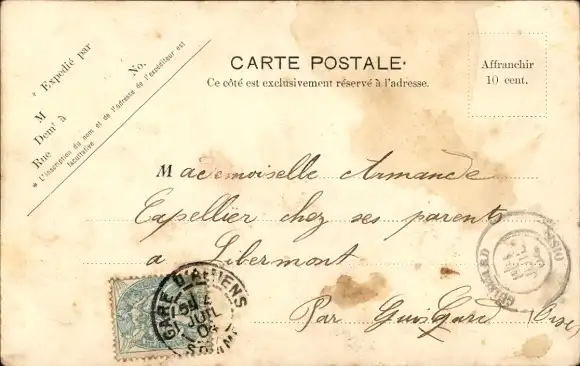 * Expédié par
M
No.
Demt à
Rue
* L'inscription du nom et de l'adresse de l'expéditeur est facultative
CARTE POSTALE.
Ce côté est exclusivement réservé à l'adresse.
Affranchir
10 cent.
Mademoiselle Armande
Expellier chez ses parents
a Libermont
Par Guisgard (Oise)
GARE D'AMIENS
JUIL
GUISCARD
OISE